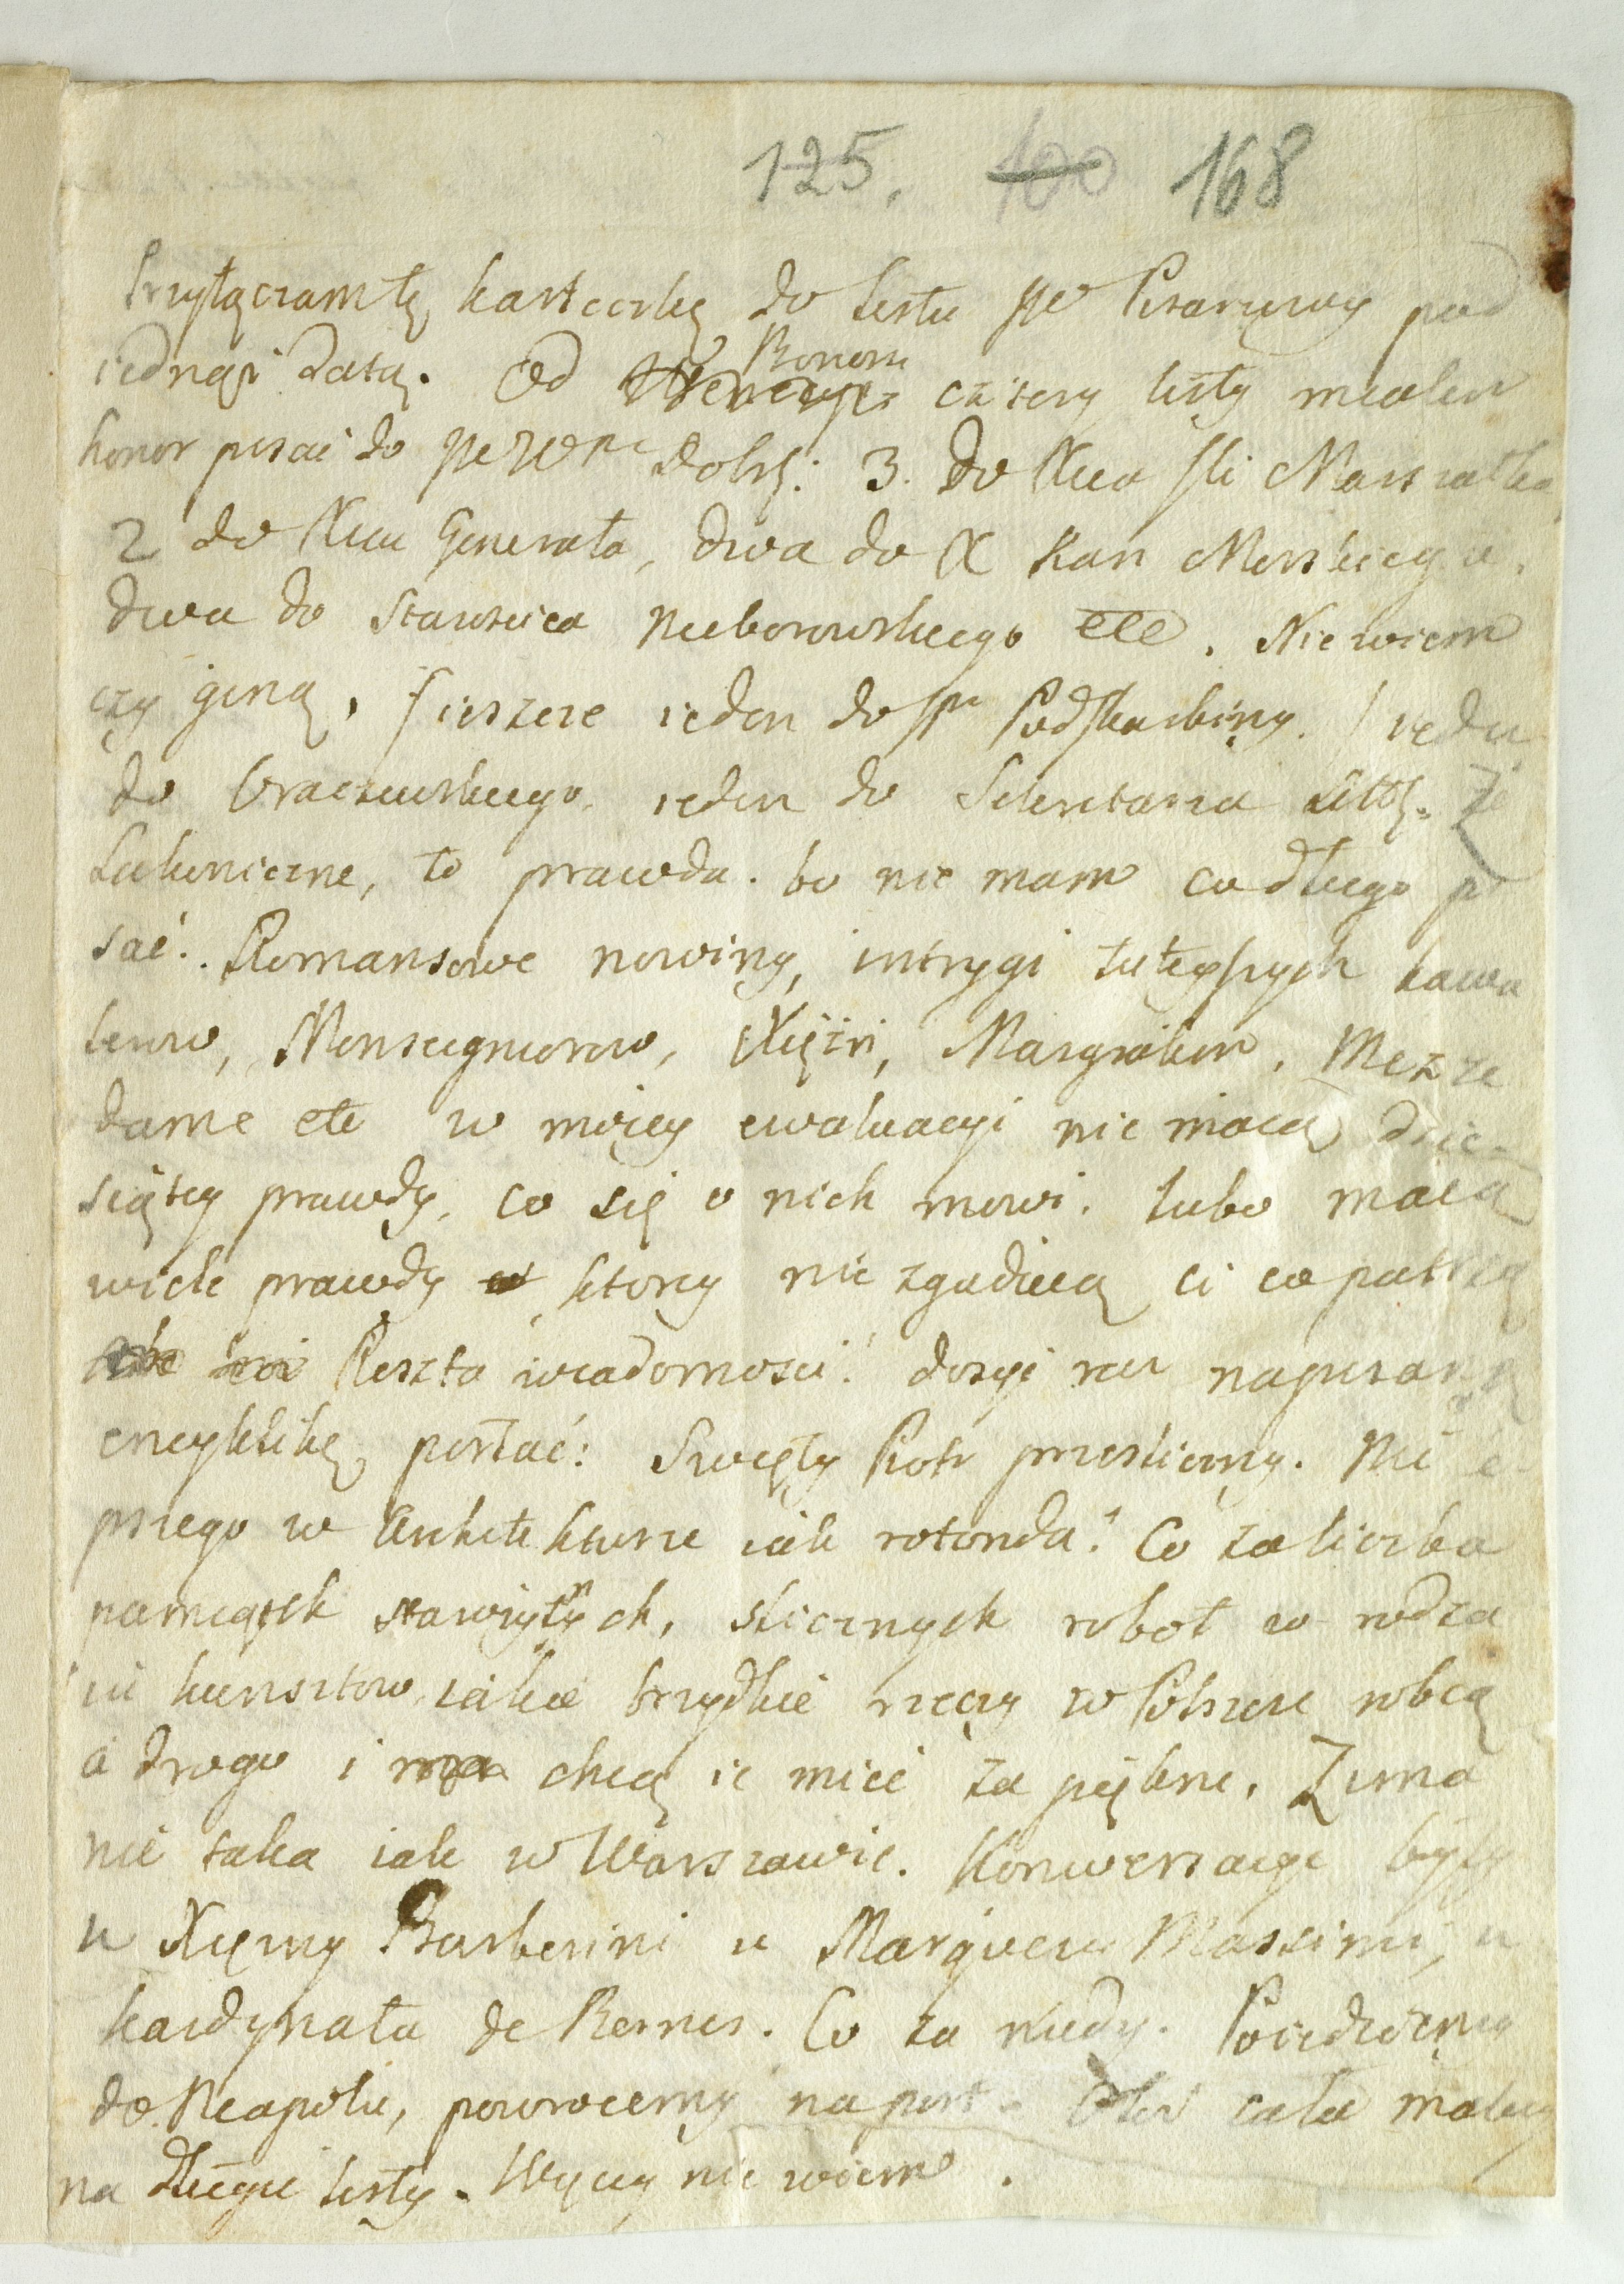 125. 100 168
Przyłączam tę karteczkę do listu JP Pisarzowy pod
iednąż datą. Od Wenecyi Bononi cztery listy miałem
honor pisać do JP WPa Dobr: 3. do Xcia JMci Marszałka
2 do Xcia Generała, dwa do X Kan Mérskiego,
dwa do Starosica Nieborowskiego etc. Nie wiem
czy giną, ieszcze ieden do JP Podskarbiny. ieden
do Graczewskiego, ieden do Sekretarza Litt. że
Lakoniczne, to prawda. bo nie mam co długo pi
sać. Romansowe nowiny, intrygi tuteyszych kawa
lerow, Monseignorow, Xiężn, Margrabin, Mezze
dame etc w moiey ewaluacyi nie maią dzie-
siątey prawdy, co się o nich mowi. lubo maią
wiele prawdy w ktorey nie zgadną ci co patrzą
Reszta wiadomości: dosyć raz napisaną
encyklikę posłać: Swięty Piotr prześliczny. Nic le-
pszego w Architekturze iak rotonda! Co za liczba
pamiątek starożytnych, slicznych robot w rodza
iu kunsztow, iakie brzydkie rzeczy w Polszcze robią
a drogo i chcą ie mieć za piękne. Zima
nie taka iak w Warszawie. Konwersacye były
u Xiężny Barberini u Marquesa Massimi, u
kardynała de Bernis. Co za nudy. Poiedziemy
do Neapolu, powrocemy na post. Otoż cała materya
na długie listy. Więcey nie wiem.